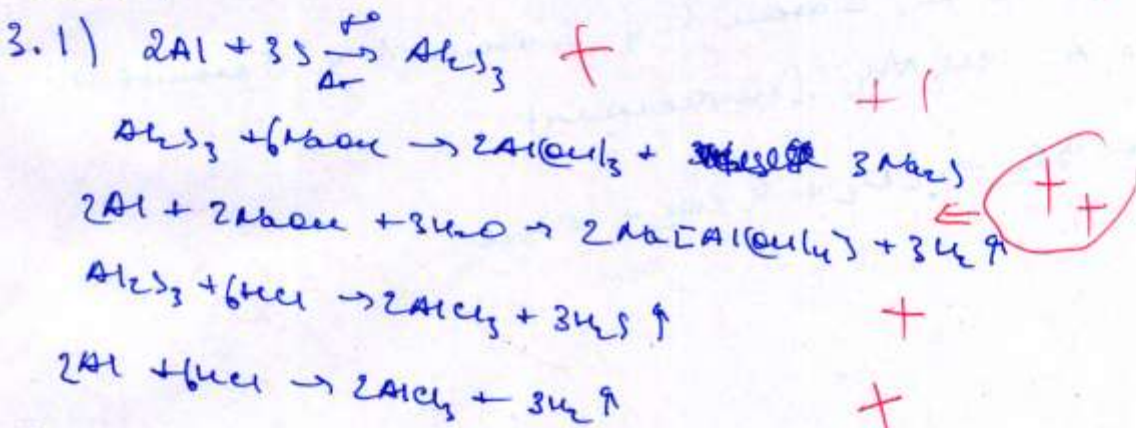 3.1) 2Al + 3S t°→ Ar Al2S3 +
+1
Al2S3 + 6NaOH → 2Al(OH)3 + 3Na2S
2Al + 2NaOH + 3H2O → 2Na[Al(OH)4] + 3H2↑ ← + +
Al2S3 + 6HCl → 2AlCl3 + 3H2S↑ +
2Al + 6HCl → 2AlCl3 + 3H2↑ +